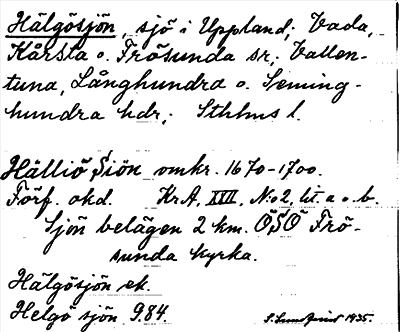 Hälgösjön, sjö i Uppland; Vada,
Kårsta o. Frösunda sr; Vallen-
tuna, Långhundra o. Seming-
hundra hdr; Sthlms l.
Hälliö Siön omkr. 1670-1700.
Förf. okd. KrA, XVII, N:o 2, lit. a o. b.
Sjön belägen 2 km. ÖSÖ Frö-
sunda kyrka.
Hälgösjön ek.
Helgö sjön G.84.
1935.